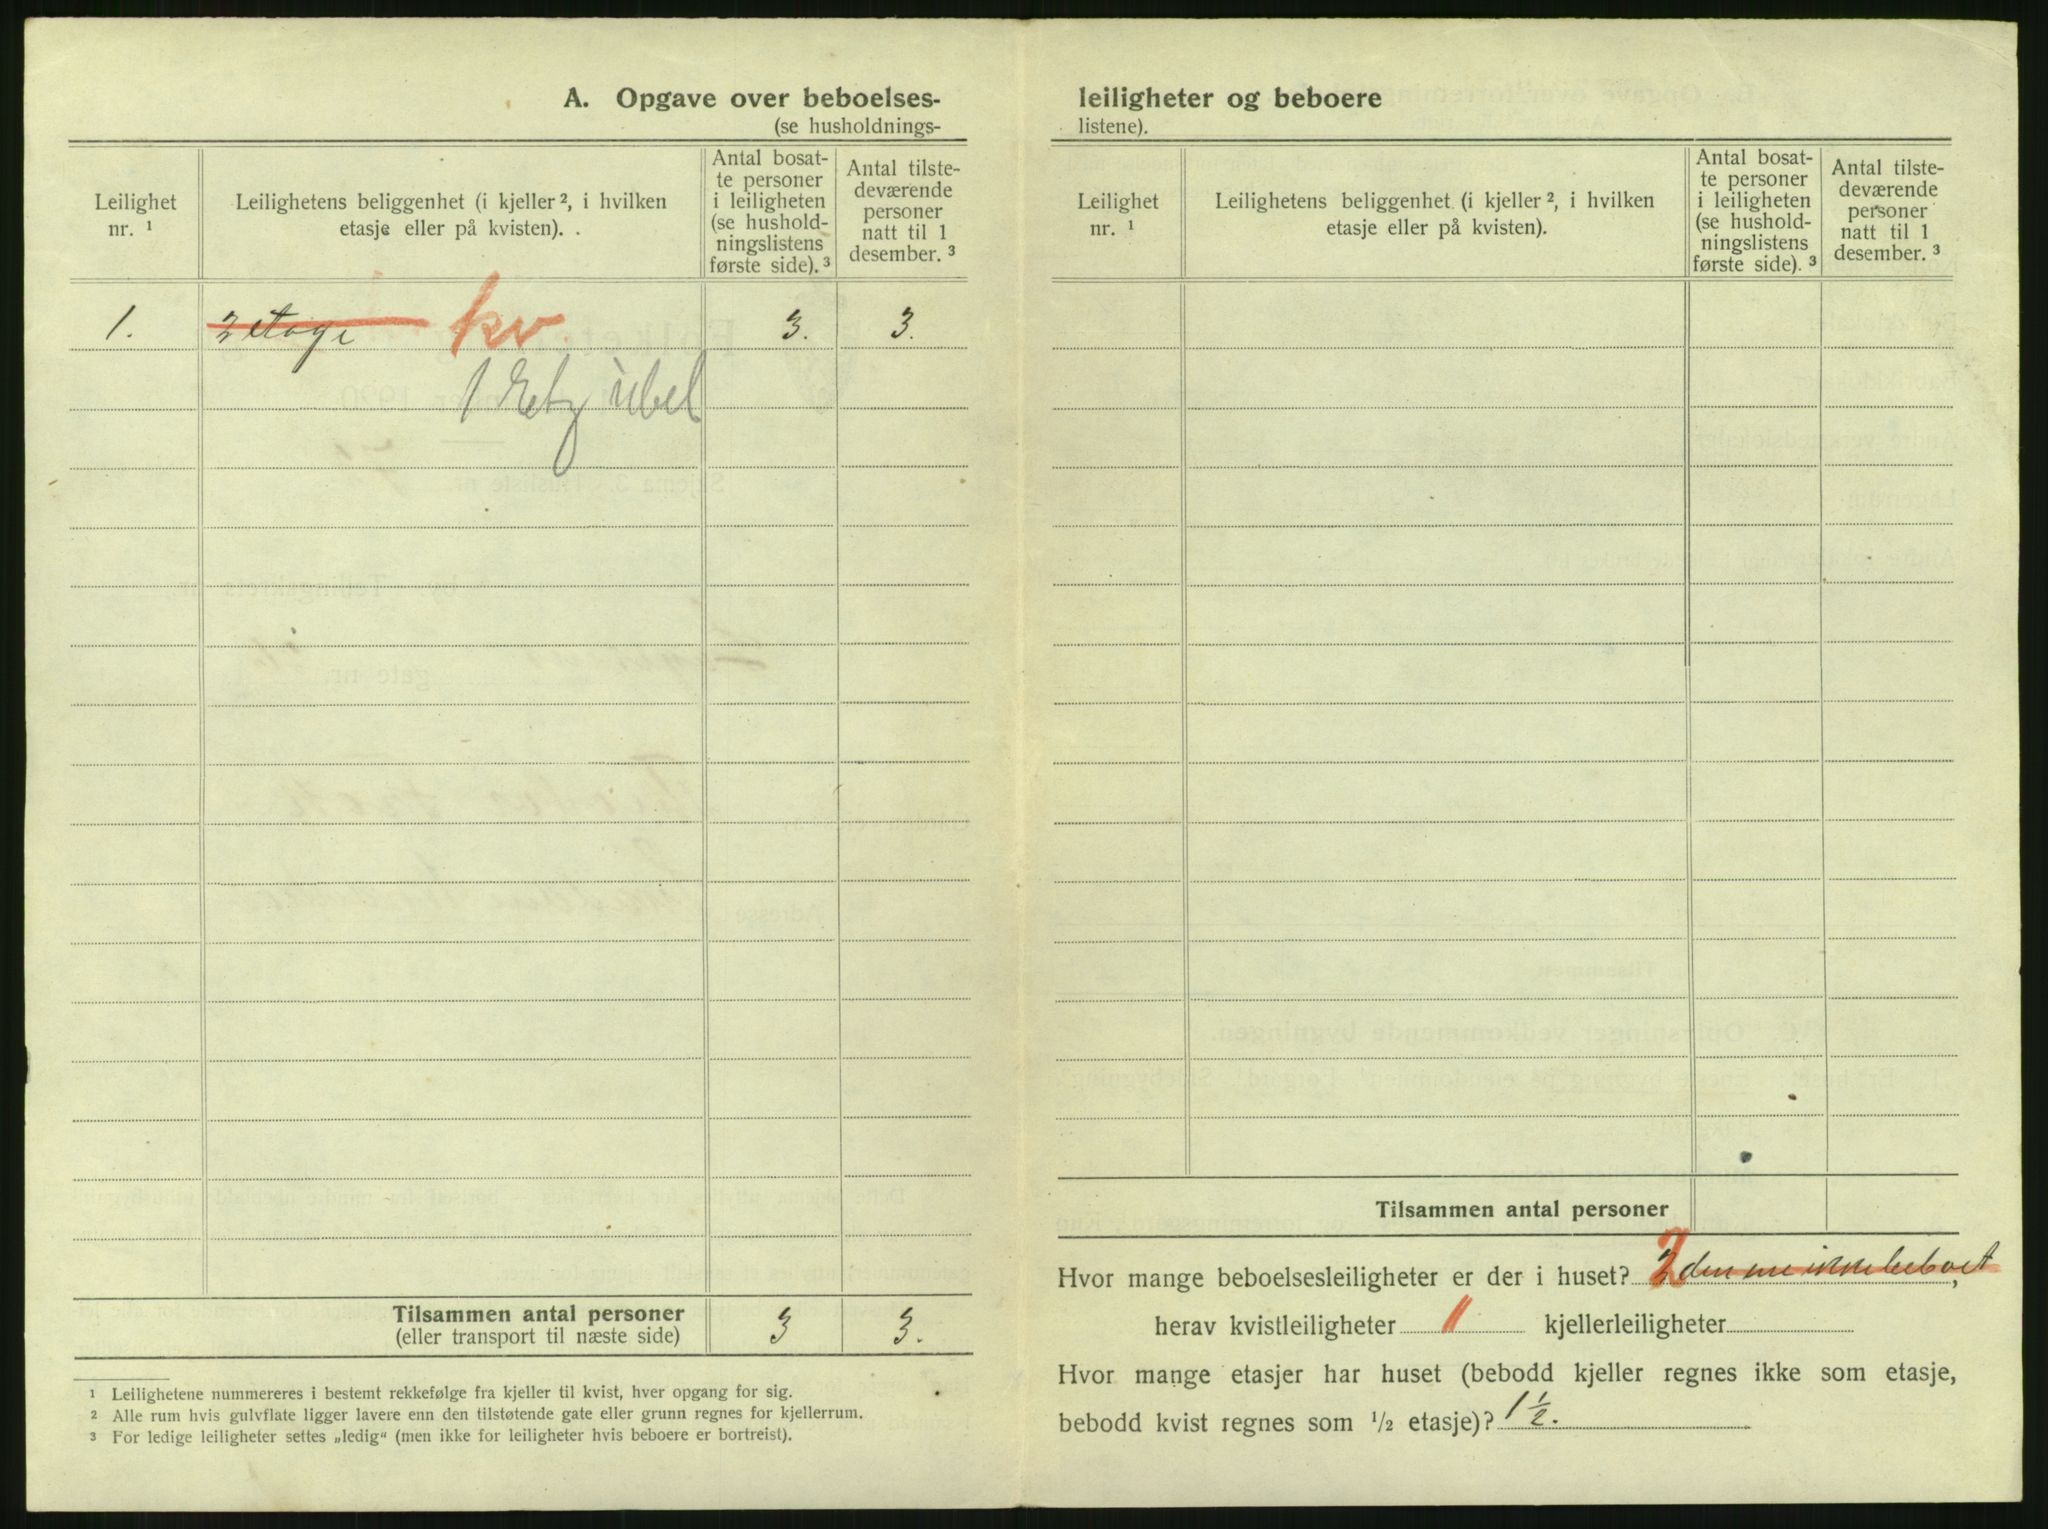 A. Opgave over beboelses-
(se husholdnings-
Leilighet nr. 1
Leilighetens beliggenhet (i kjeller 2, i hvilken etasje eller på kvisten).
Antal bosat-
te personer
i leiligheten
(se hushold-
ningslistens
første side). 3
Antal tilste-
deværende
personer
natt til 1
desember. 3
1. 2 etage kv. 3. 3.
1 Etg ubel
Tilsammen antal personer 3 3.
(eller transport til næste side)
1 Leilighetene nummereres i bestemt rekkefølge fra kjeller til kvist, hver opgang for sig.
2 Alle rum hvis gulvflate ligger lavere enn den tilstøtende gate eller grunn regnes for kjellerrum.
3 For ledige leiligheter settes „ledig“ (men ikke for leiligheter hvis beboere er bortreist).
leiligheter og beboere
listene).
Leilighet nr. 1
Leilighetens beliggenhet (i kjeller 2, i hvilken etasje eller på kvisten).
Antal bosat-
te personer
i leiligheten
(se hushold-
ningslistens
første side). 3
Antal tilste-
deværende
personer
natt til 1
desember. 3
Tilsammen antal personer
Hvor mange beboelsesleiligheter er der i huset? 2 den ene ikke beboet,
herav kvistleiligheter 1 kjellerleiligheter
Hvor mange etasjer har huset (bebodd kjeller regnes ikke som etasje,
bebodd kvist regnes som 1/2 etasje)? 1 1/2.